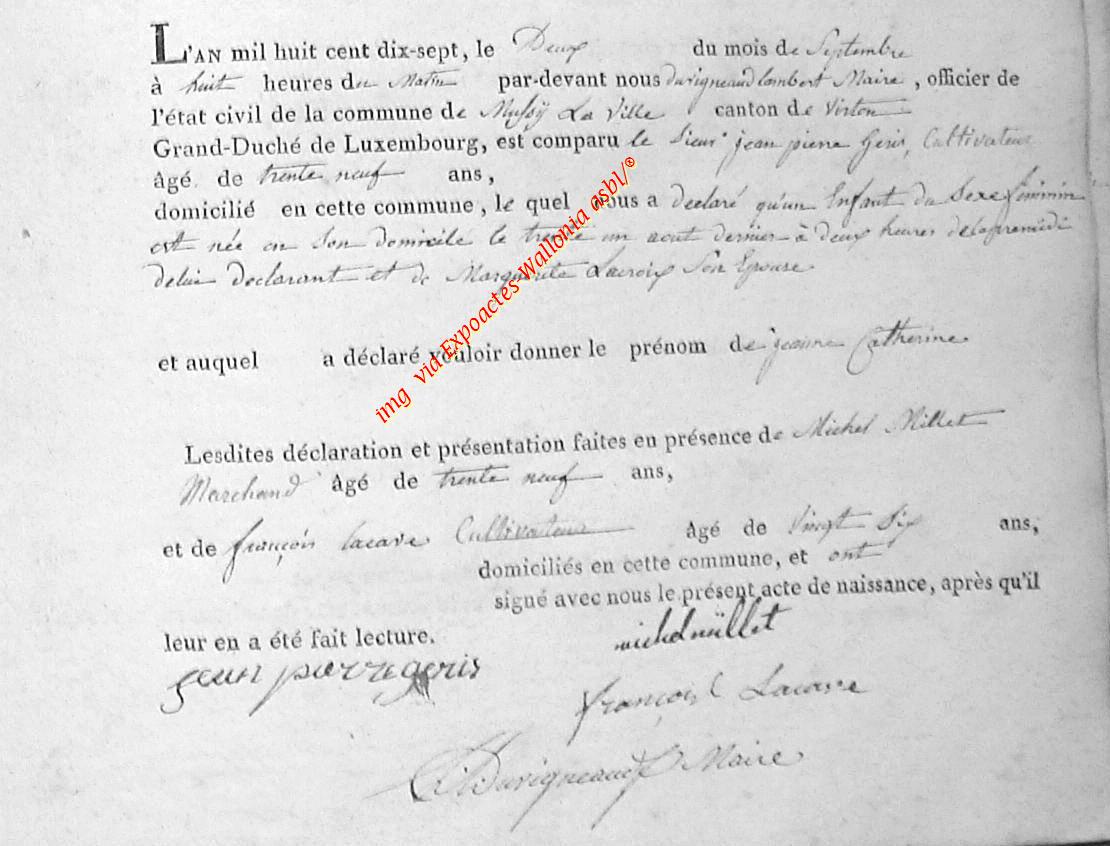 L'AN mil huit cent dix-sept, le Deux du mois de Septembre
à huit heures du Matin par-devant nous Duvigneaud lambert Maire, officier de
l'état civil de la commune de Mussÿ La Ville canton de Virton
Grand-Duché de Luxembourg, est comparu le Sieur jean pierre Geris, Cultivateur
âgé de trente neuf ans,
domicilié en cette commune, le quel nous a declaré qu'un Enfant du Sexe feminin
est née en Son domicile le trente un aout dernier à deux heures de lapremidi
delui Declarant et de Marguerite Lacroix Son Epouse
et auquel a déclaré vouloir donner le prénom de jeanne Catherine
Lesdites déclaration et présentation faites en présence de Michel Millet
Marchand âgé de trente neuf ans,
et de françois lacave Cultivateur âgé de Vingt Six ans,
domiciliés en cette commune, et ont
signé avec nous le présent acte de naissance, après qu'il
leur en a été fait lecture.
michel müllet
jean pierre geris
françois Lacave
Duvigneaud Maire
img via Expoactes-Wallonia asbl/®